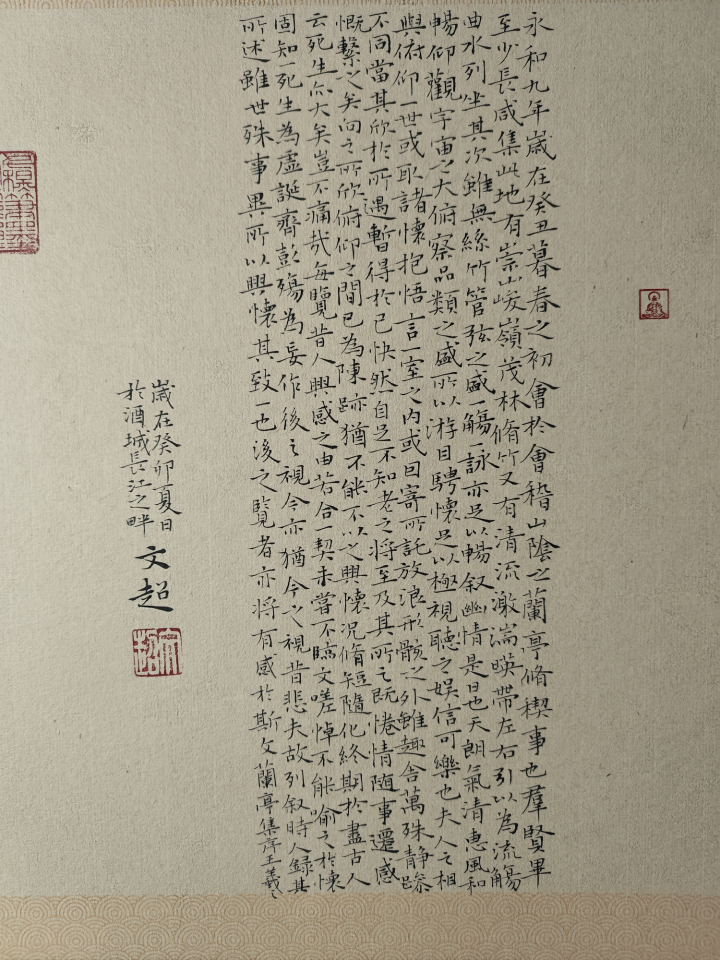 永和九年歲在癸丑暮春之初會於會稽山陰之蘭亭脩稧事也羣賢畢
至少長咸集此地有崇山峻嶺茂林脩竹又有清流激湍暎帶左右引以為流觴
曲水列坐其次雖無絲竹管弦之盛一觴一詠亦足以暢叙幽情是日也天朗氣清惠風和
暢仰觀宇宙之大俯察品類之盛所以游目騁懷足以極視聽之娛信可樂也夫人之相
與俯仰一世或取諸懷抱悟言一室之內或因寄所託放浪形骸之外雖趣舍萬殊静躁
不同當其欣於所遇暫得於己快然自足不知老之將至及其所之既惓情随事遷感
慨繫之矣向之所欣俯仰之間已為陳跡猶不能不以之興懷況脩短隨化終期於盡古人
云死生亦大矣豈不痛哉每覽昔人興感之由若合一契未嘗不臨文嗟悼不能喻之於懷
固知一死生為虛誕齊彭殤為妄作後之視今亦猶今之視昔悲夫故列叙時人錄其
所述雖世殊事異所以興懷其致一也後之覽者亦將有感於斯文蘭亭集序王羲之
歲在癸卯夏日
於酒城長江之畔
文超
文超